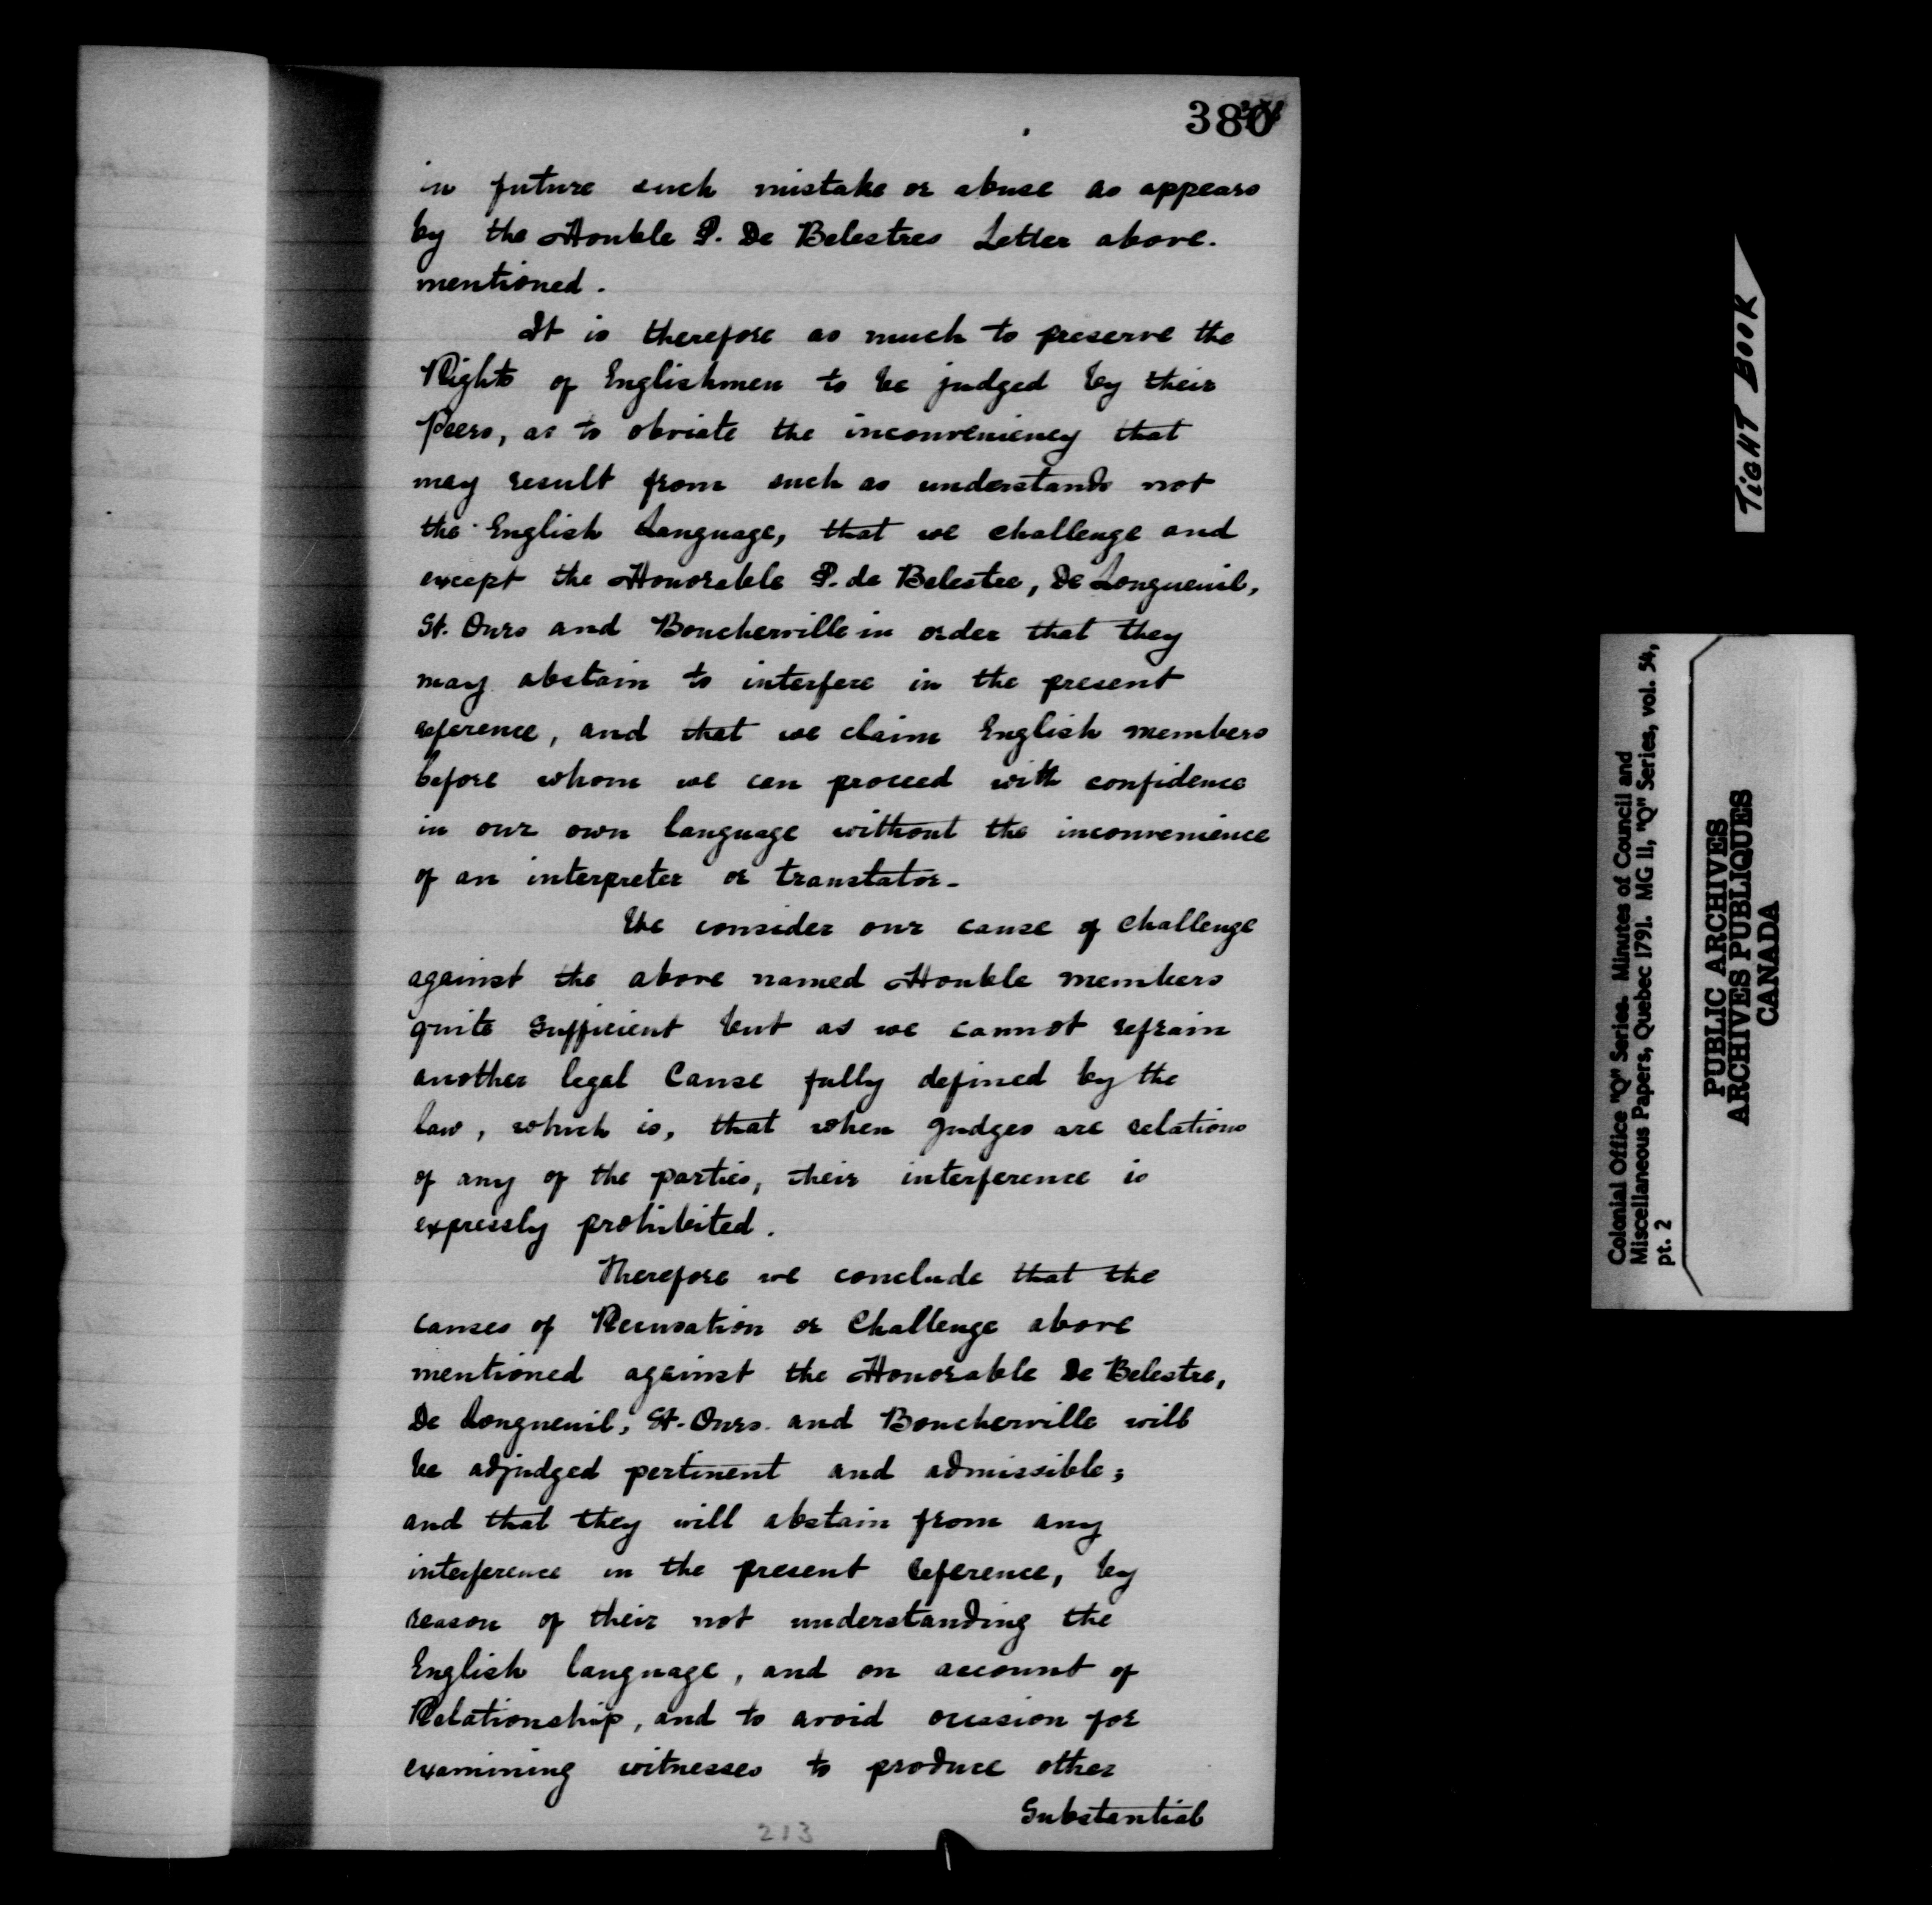 380
in future such mistake or abuse as appears
by the Honble P. De Belestres Letter above.
mentioned.
It is therefore as much to preserve the
Rights of Englishmen to be judged by their
Peers, as to obviate the inconveniency that
may result from such as understands not
the English Language, that we challenge and
except the Honorable P. de Belestre, De Longueuil,
St. Ours and Boucherville in order that they
may abstain to interfere in the present
reference, and that we claim English members
before whom we can proceed with confidence
in our own language without the inconvenience
of an interpreter or translator.
We consider our cause of challenge
against the above named Honble members
quite sufficient but as we cannot refrain
another legal Cause fully defined by the
law, which is, that when Judges are relations
of any of the parties, their interference is
expressly prohibited.
Therefore we conclude that the
causes of Recusation or Challenge above
mentioned against the Honorable De Belestre,
De Longueuil, St. Ours. and Boucherville will
be adjudged pertinent and admissible;
and that they will abstain from any
interference in the present reference, by
reason of their not understanding the
English language, and on account of
Relationship, and to avoid occasion for
examining witnesses to produce other
Substantial
213
TIGHT BOOK
Colonial Office "Q" Series. Minutes of Council and
Miscellaneous Papers, Quebec 1791. MG 11, "Q" Series, vol. 54,
pt. 2
PUBLIC ARCHIVES
ARCHIVES PUBLIQUES
CANADA